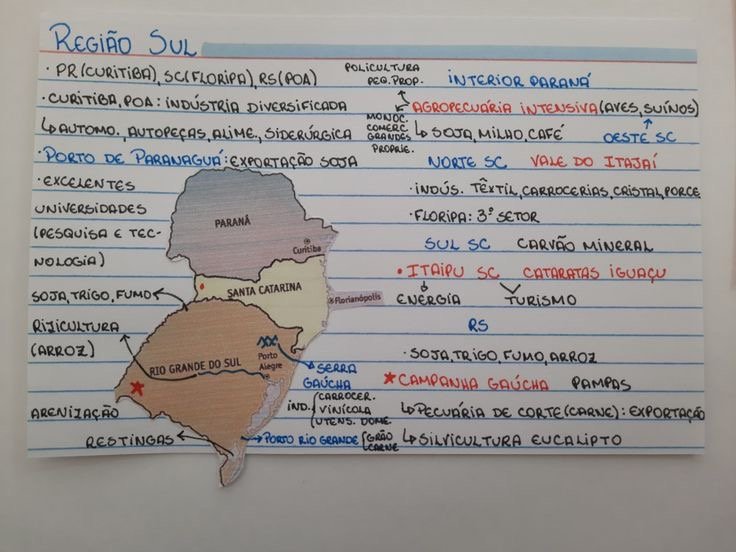 REGIÃO SUL
• PR (CURITIBA), SC (FLORIPA), RS (POA)
• CURITIBA, POA: INDÚSTRIA DIVERSIFICADA
↳ AUTOMO., AUTOPEÇAS, ALIME., SIDERÚRGICA
• PORTO DE PARANAGUÁ: EXPORTAÇÃO SOJA
• EXCELENTES
UNIVERSIDADES
(PESQUISA E TEC-
NOLOGIA)
SOJA, TRIGO, FUMO
RIJICULTURA
(ARROZ)
ARENIZAÇÃO
RESTINGAS
PARANÁ
Curitiba
SANTA CATARINA
Florianópolis
RIO GRANDE DO SUL
Porto
Alegre
SERRA
GAÚCHA
IND. CARROCER.
VINÍCOLA
UTENS. DOME.
PORTO RIO GRANDE GRÃO
CARNE
POLICULTURA
PEQ. PROP.
INTERIOR PARANÁ
AGROPECUÁRIA INTENSIVA (AVES, SUÍNOS)
MONOC.
COMERC.
GRANDES
PROPRIE.
↳ SOJA, MILHO, CAFÉ
OESTE SC
NORTE SC VALE DO ITAJAÍ
• INDÚS. TÊXTIL, CARROCERIAS, CRISTAL, PORCE
• FLORIPA: 3º SETOR
SUL SC CARVÃO MINERAL
• ITAIPU SC CATARATAS IGUAÇU
ENERGIA TURISMO
RS
• SOJA, TRIGO, FUMO, ARROZ
★ CAMPANHA GAÚCHA PAMPAS
↳ PECUÁRIA DE CORTE (CARNE): EXPORTAÇÃO
↳ SILVICULTURA EUCALIPTO